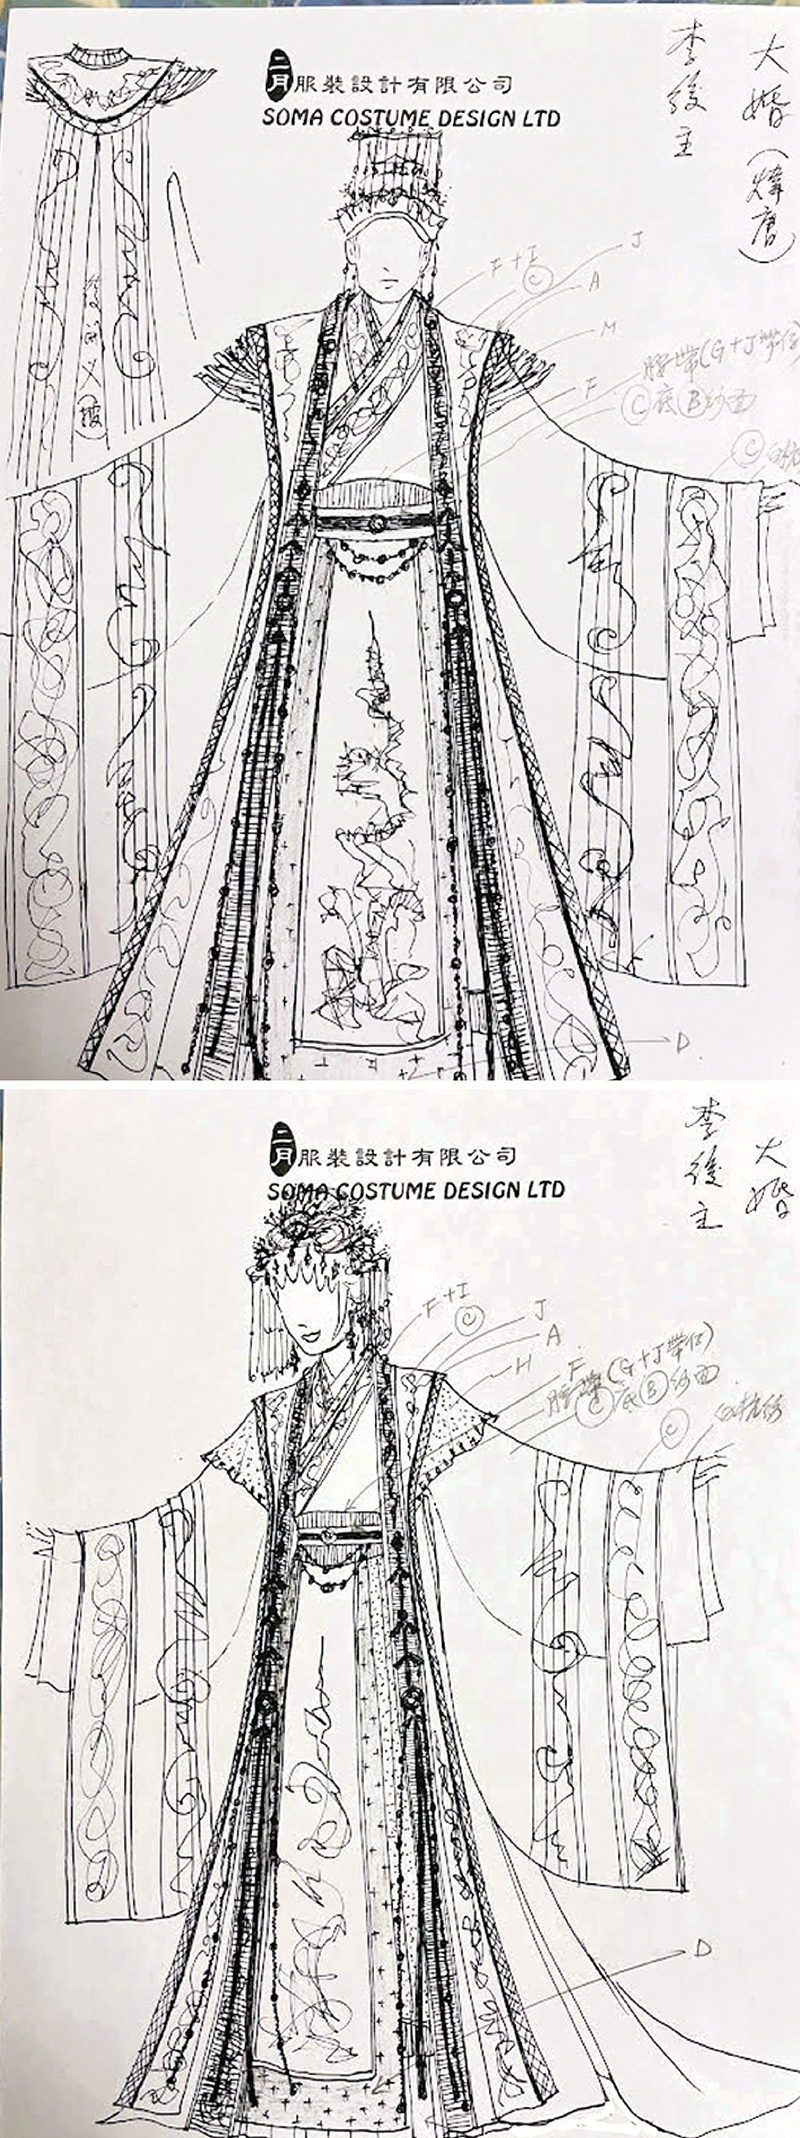 大婚(煒唐)
李後主
二月服裝設計有限公司
SOMA COSTUME DESIGN LTD
F+I
C
J
A
M
膠帶(G+J帶仔)
F
C底B紗面
C
D
大婚
李後主
二月服裝設計有限公司
SOMA COSTUME DESIGN LTD
F+I
C
J
A
H
F
膠帶(G+J帶仔)
C底B紗面
C
D